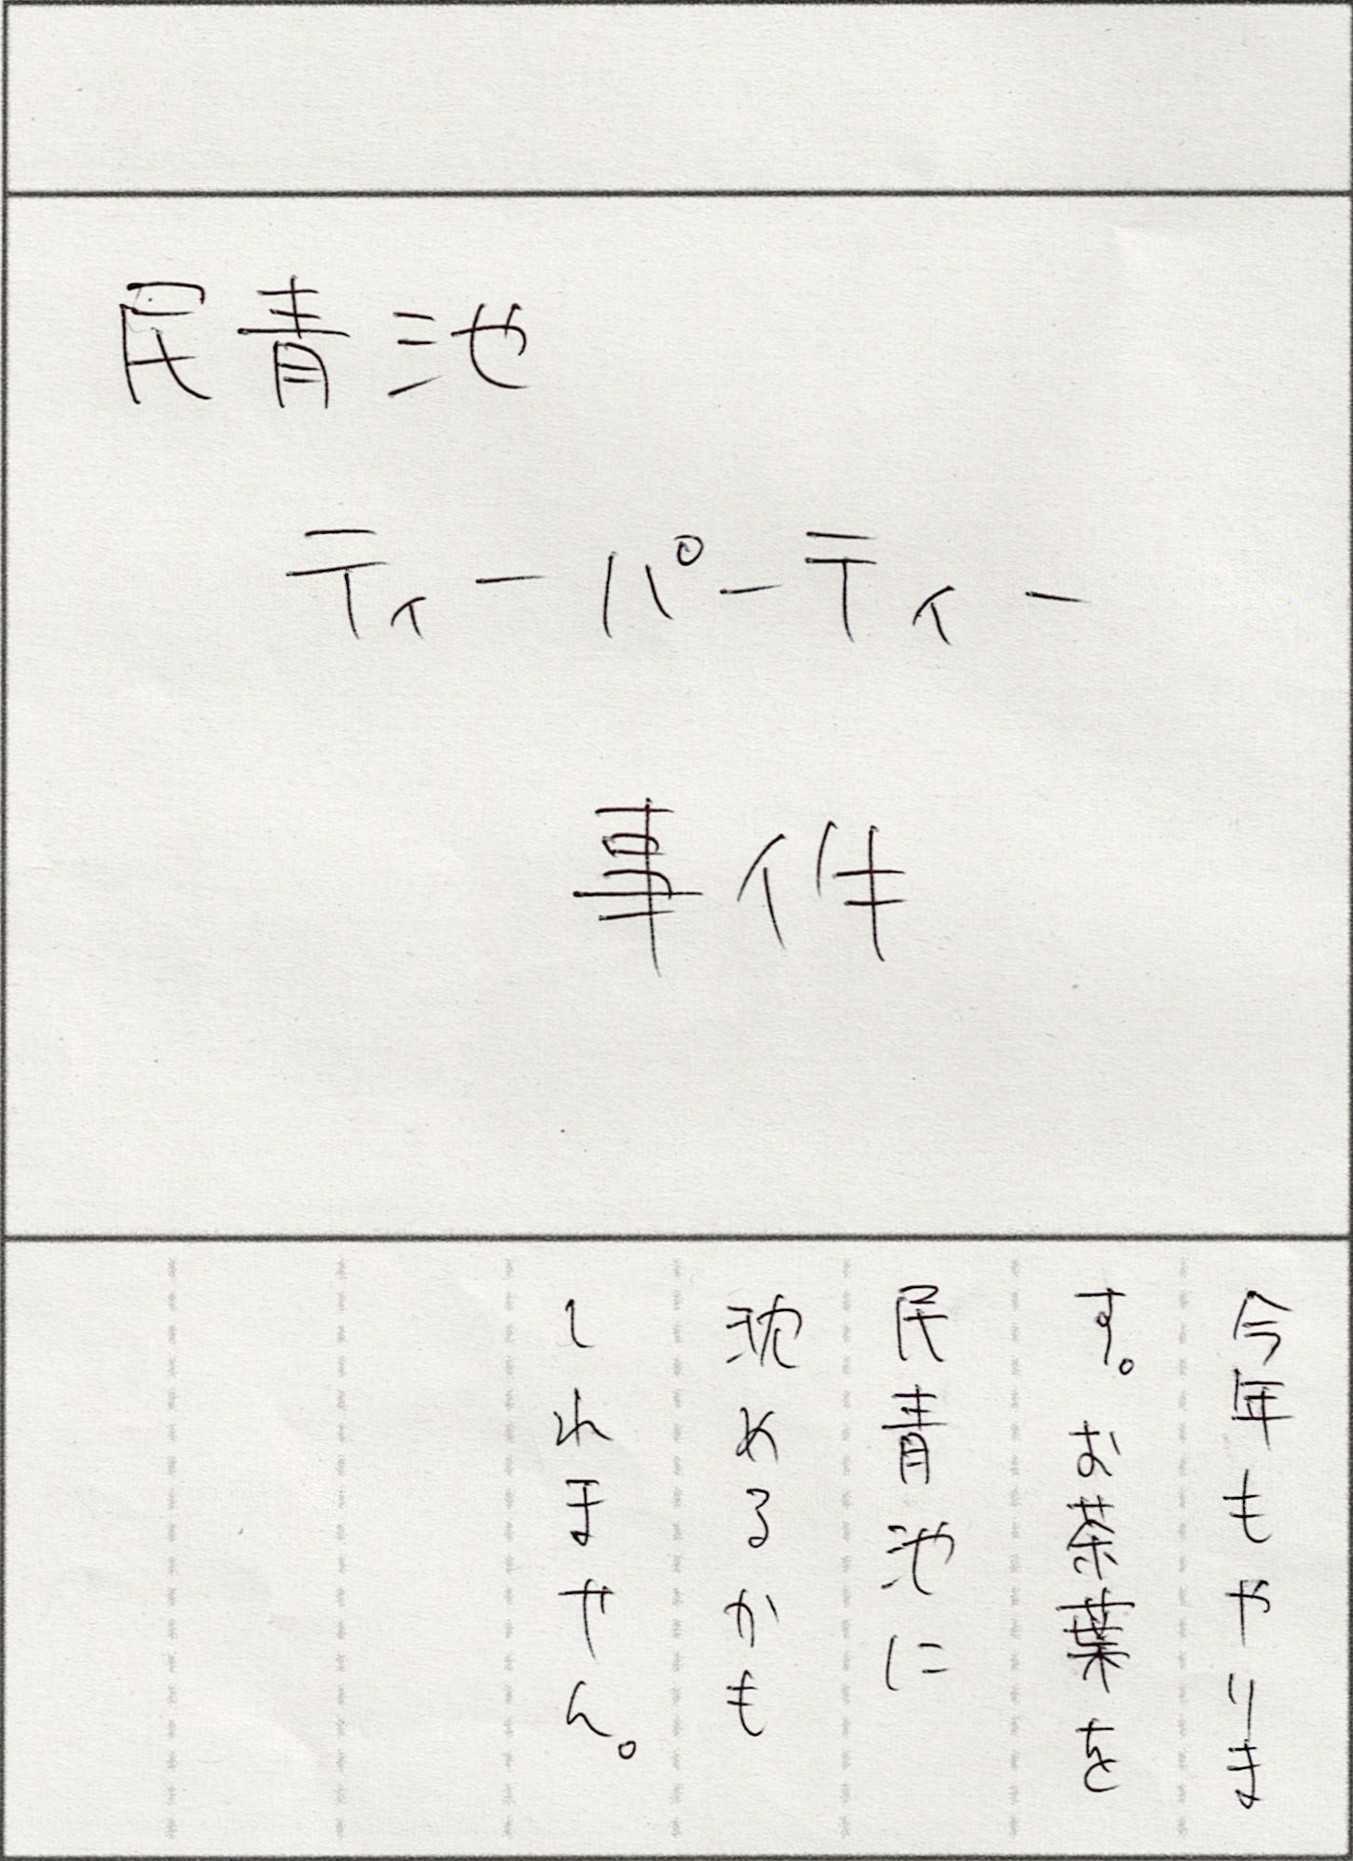 民青池
ティーパーティー
事件
今年もやりま
す。お茶葉を
民青池に
沈めるかも
しれません。